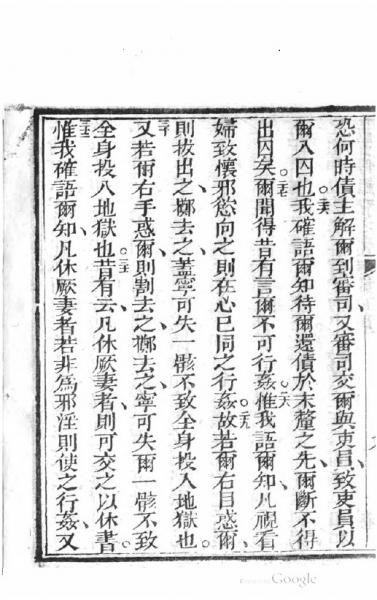 恐何時債主解爾到審司、又審司交爾與吏員、致吏員以
爾入囚也。二六我確語爾知、待爾還債於末釐之先、爾斷不得
出囚矣。二七爾聞得昔有言、爾不可行姦。二八惟我語爾知、凡視看
婦致懷邪慾向之、則在心已同之行姦。二九故若爾右目惑爾、
則拔出之、擲去之、蓋寧可失一骸、不致全身投入地獄也。
三十又若爾右手惑爾、則割去之、擲去之、寧可失爾一骸、不致
全身投入地獄也。三一昔有云、凡休厥妻者、則可交之以休書。
三二惟我確語爾知、凡休厥妻者、若非為邪淫、則使之行姦、又
Google